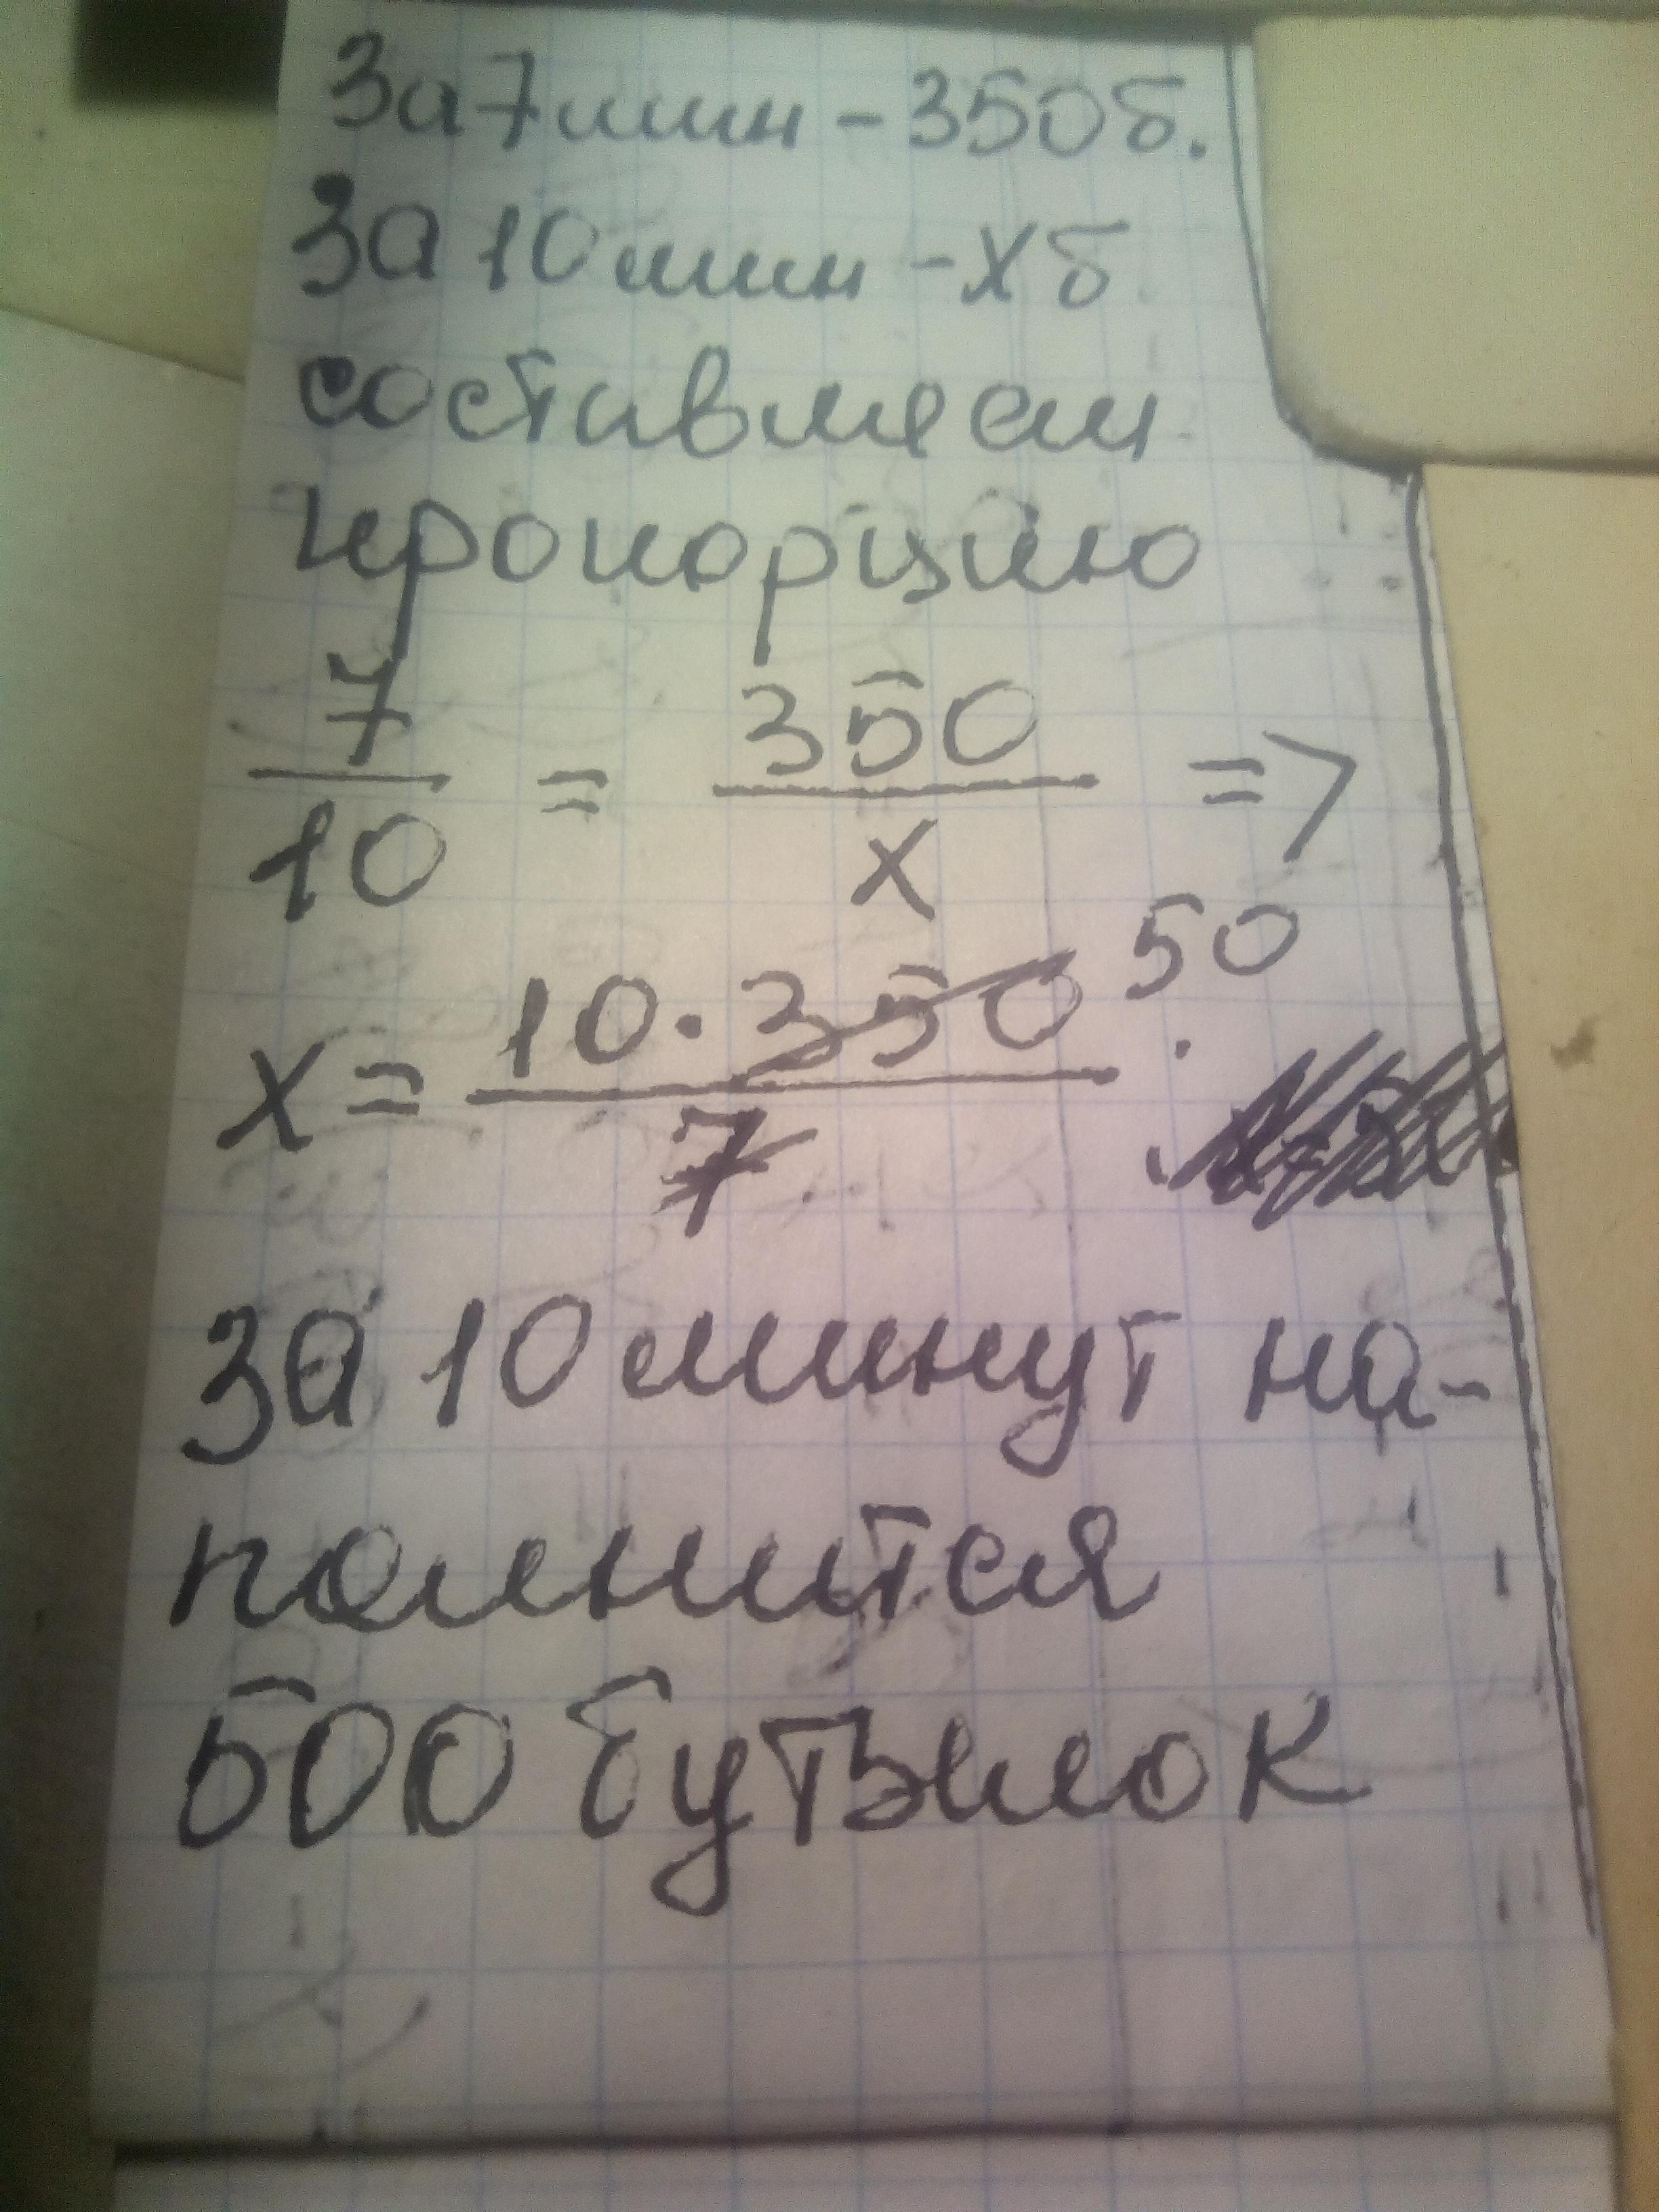 За 7 мин - 350 б.
За 10 мин - х б
составляем
пропорцию
7/10 = 350/х =>
х = 10 · 350/7 50 .
За 10 минут на-
полнится
500 бутылок